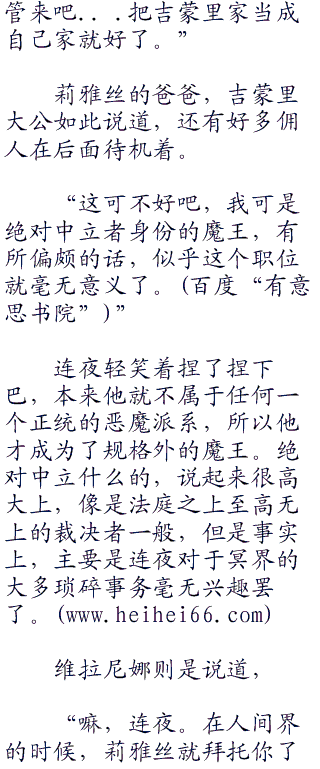 管来吧...把吉蒙里家当成
自己家就好了。”
莉雅丝的爸爸，吉蒙里
大公如此说道，还有好多佣
人在后面待机着。
“这可不好吧，我可是
绝对中立者身份的魔王，有
所偏颇的话，似乎这个职位
就毫无意义了。(百度“有意
思书院”)”
连夜轻笑着捏了捏下
巴，本来他就不属于任何一
个正统的恶魔派系，所以他
才成为了规格外的魔王。绝
对中立什么的，说起来很高
大上，像是法庭之上至高无
上的裁决者一般，但是事实
上，主要是连夜对于冥界的
大多琐碎事务毫无兴趣罢
了。(www.heihei66.com)
维拉尼娜则是说道，
“嘛，连夜。在人间界
的时候，莉雅丝就拜托你了